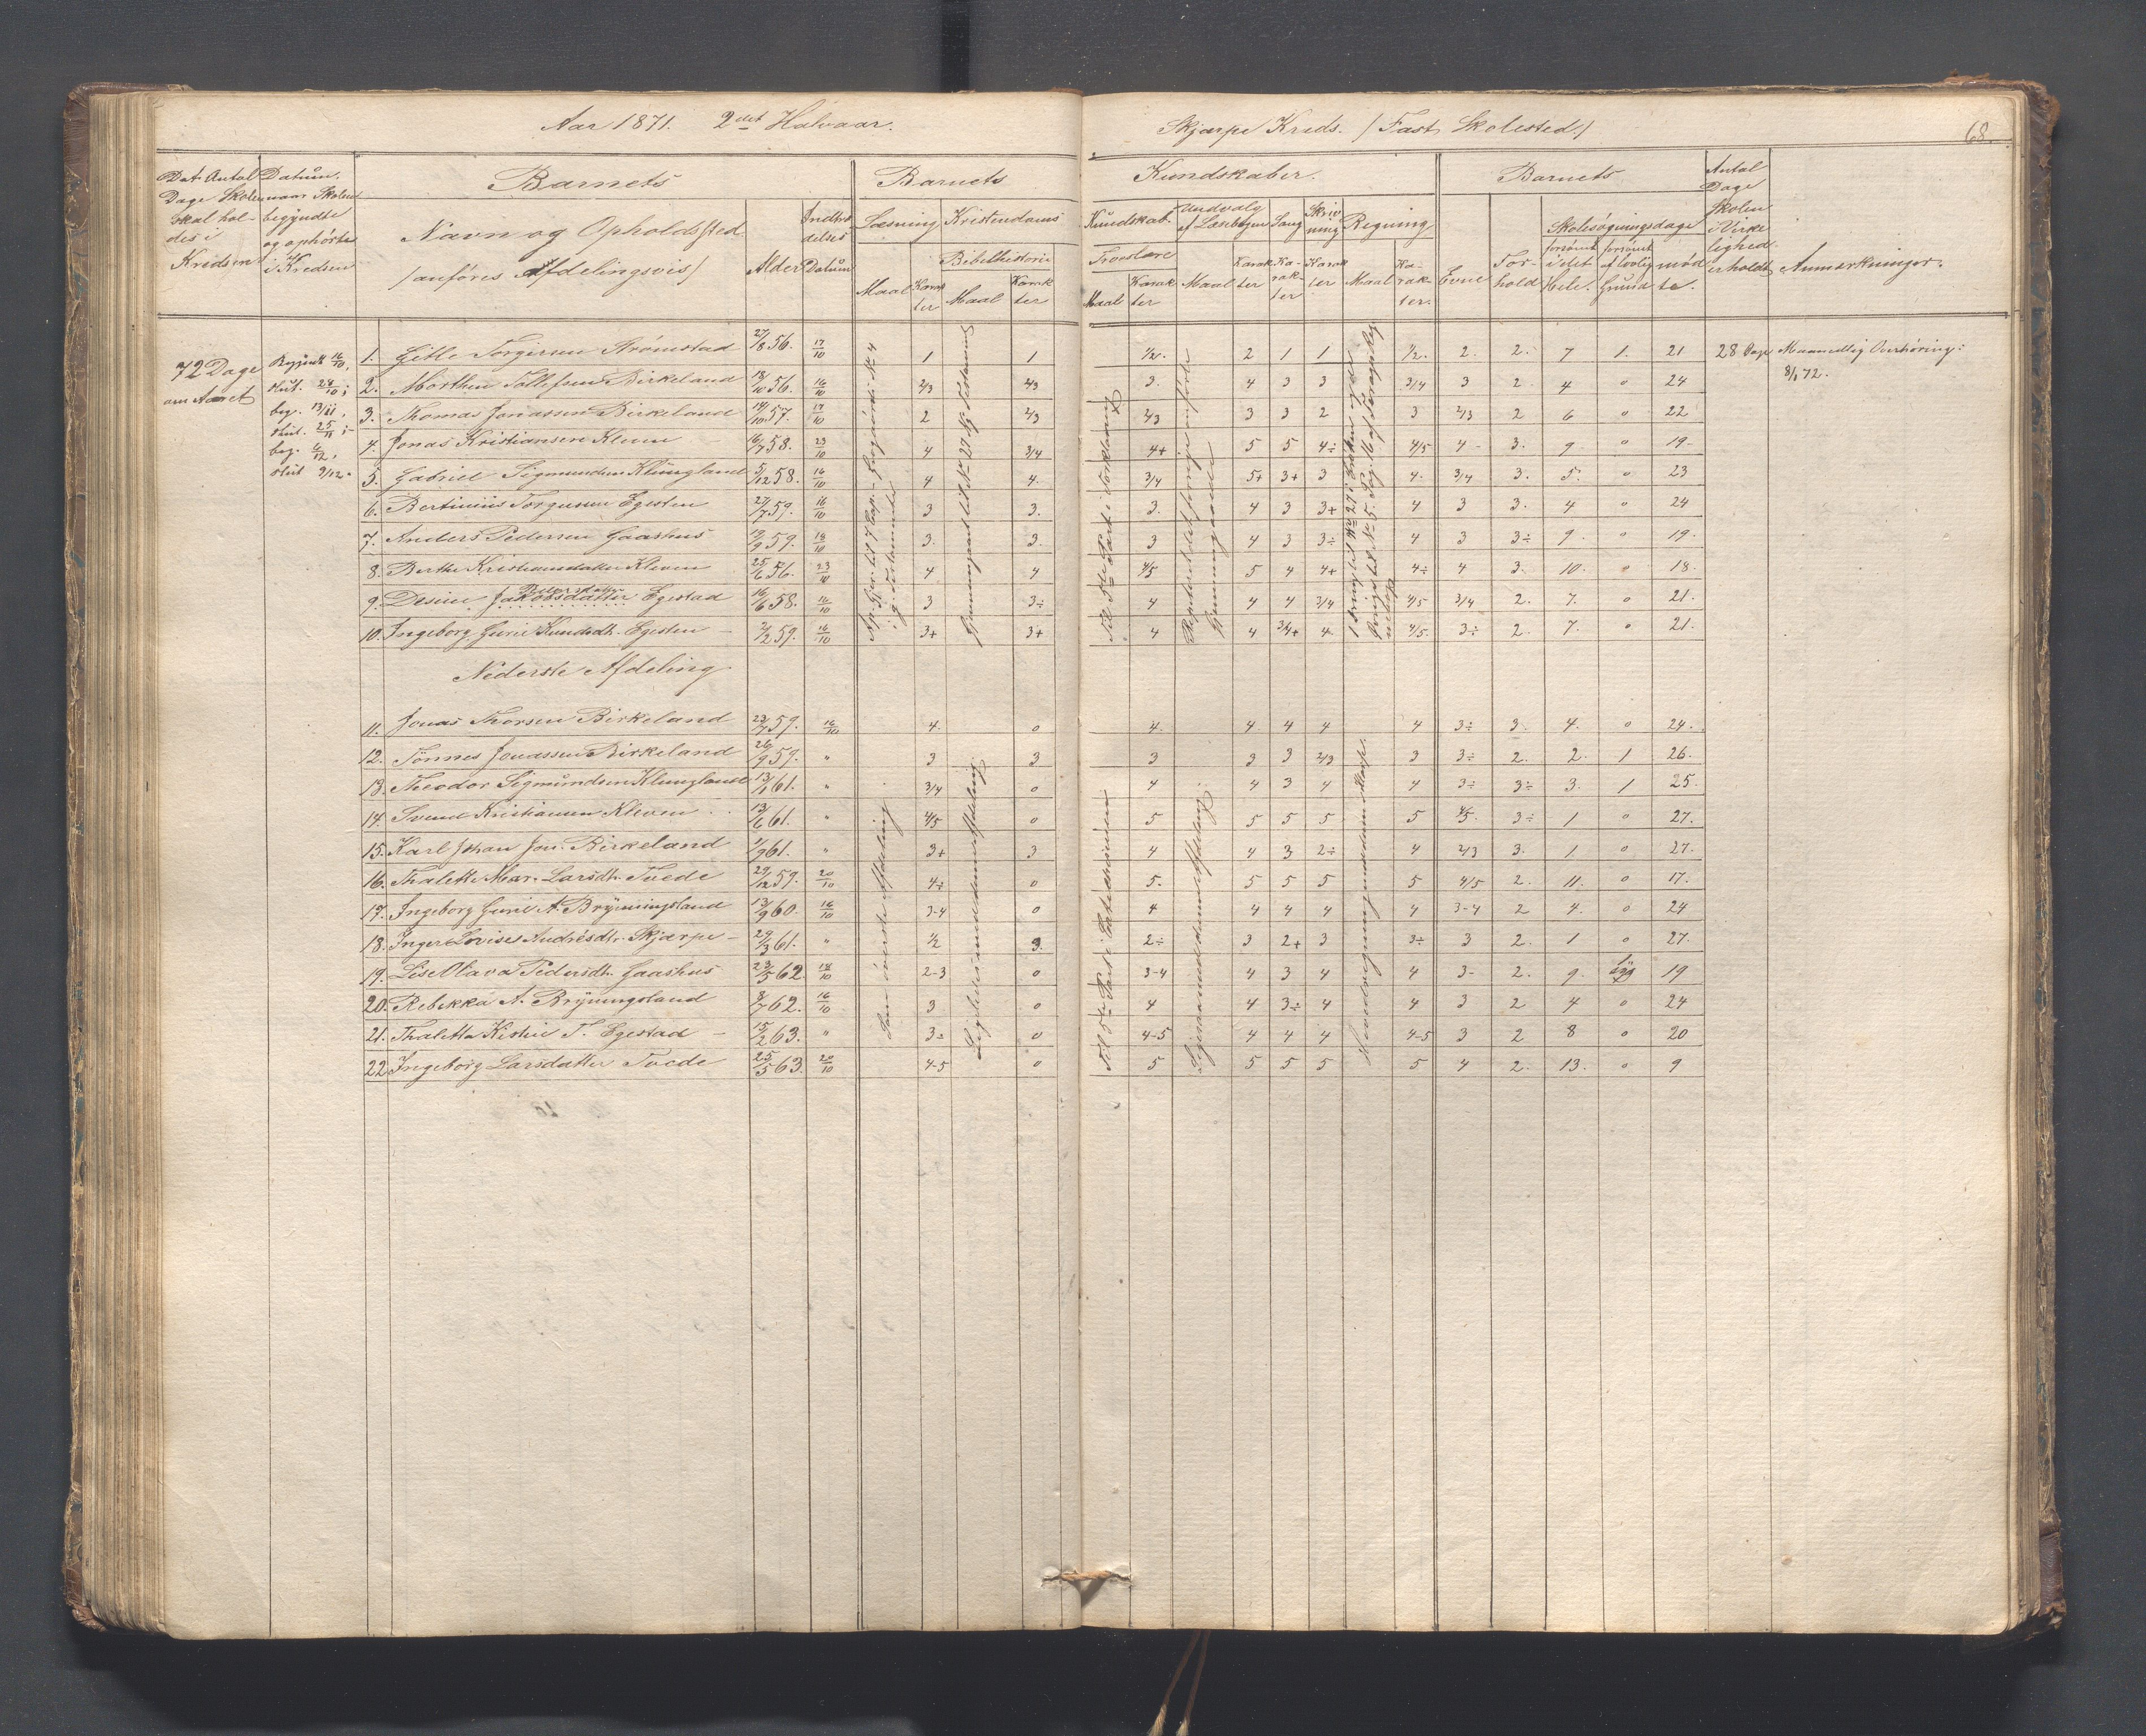 Aar 1871. 2det Halvaar.
Skjærpe Kreds. / Fast Skolested /
68.
Det Antal Dage Skolen skal holdes i Kredsen
Datum, naar Skolen begyndte og ophørte i Kredsen
Barnets
Navn og Opholdssted
/anføres Afdelingsvis/
Alder
Indtrædelses Datum
Barnets
Læsning
Maal
Karakter
Kristendoms
Bibelhistorie
Maal
Karakter
Kundskaber.
Kundskab.
Troeslære
Maal
Karakter
Uudvalg af Læsebogen
Maal
Karakter
Sang
Karakter
Skrivning
Karakter
Regning
Maal
Karakter.
Barnets
Evne
Forhold
Skolesøgningsdage
forsømt i det Hele.
forsømt af lovlig Grund
mødte.
Antal Dage Skolen i Virkelighed erholdt
Anmærkninger.
72 Dage om Aaret
Begyndt 16/10,
slut. 28/10;
beg. 13/11,
slut. 25/11;
beg. 6/12,
slut 9/12.
1. Gitle Torgersen Strømstad 27/8 56. 17/10 1 1 1/2. 2 1 1 1/2. 2. 2. 7 1. 21 28 Dage Maanedlig Overhøring:
8/1 72.
2. Morthen Tollefsen Birkeland 18/10 56. 16/10 2/3 2/3 3. 4 3 3 3/4 3 2. 4 0 24
3. Thomas Jonassen Birkeland 14/10 57. 17/10 2 2/3 2/3 3 3 2 3 2/3 2 6 0 22
4. Jonas Kristiansen Kleven 16/7 58. 23/10 4 3/4 4+ 5 5 4÷ 4/5 4- 3. 9. 0 19-
5. Gabriel Sigmundsen Klungland 5/12 58. 16/10 4 4. 3/4 5+ 3+ 3 4. 3/4 3. 5. 0 23
6. Bertinius Torgersen Egesten 27/7 59. 16/10 3 3. 3. 4 3 3+ 4 3 3. 4 0 24
7. Anders Pedersen Gaashus 12/9 59. 18/10 3. 3. 3 4 3 3÷ 4 3 3÷ 9. 0 19.
8. Berthe Kristiansdatter Kleven 25/6 56. 23/10 4 4 4/5 5 4 4+ 4÷ 4 3. 10. 0 18.
9. Desine Jakobsdatter Egestad 16/6 58. 16/10 3 3÷ 4 4 4 3/4 4/5 3/4 2. 7. 0 21.
10. Ingeborg Gurie Knudsdt. Egesten - 2/2 59. 16/10 3+ 3+ 4 4 3/4+ 4 4/5. 3÷ 2 7. 0 21.
Nederste Afdeling
11. Jonas Thorsen Birkeland 23/7 59. 16/10 4. 0 4. 4 4 4 4 3÷ 3. 4. 0 24.
12. Tönnes Jonassen Birkeland 26/9 59. " 3 3 3 3 3 2/3 3 3÷ 2. 2. 1 26.
13. Theodor Sigmundsen Klungland 13/1 61. " 3/4 0 4 4 3 4 4 3÷ 3÷ 3. 1 25.
14. Svend Kristiansen Kleven 13/6 61. " 4/5 0 5 5 5 5 5 4/5. 3÷ 1 0 27.
15. Karl Johan Jon. Birkeland 1/9 61. " 3+ 3 4 4 3 2÷ 4 2/3 3. 1 0 27.
16. Thalette Mar. Larsdt. Tvede 29/12 59. 20/10 4÷ 0 5. 5 5 5 5 4/5 2. 11. 0 17.
17. Ingeborg Gurie A. Bryningsland 13/9 60. 16/10 3-4 0 4 4 4 4 4 3-4 2 4. 0 24
18. Inger Lovise Andrésdt. Skjærpe - 29/3 61. " 1/2 3. 2÷ 3 2+ 3 3÷ 3 2. 1 0 27.
19. Lise Olava Pedersdt. Gaashus 23/5 62. 18/10 2-3 0 3-4 4 3 4 4 3- 2. 9. 19
20. Rebekka A. Bryningsland 8/7 62. 16/10 3 0 4 4 3÷ 4 4 3 2 4 0 24
21. Thalette Kistine T. Egestad - 15/2 63. " 3÷ 0 4-5 4 4 4 4-5 3 2 8 0 20
22. Ingeborg Larsdatter Tvede 25/5 63. 20/10 4-5 0 5 5 5 5 5 4 2. 13. 0 9
Som øverste Afdeling
Ligeledes med denne Afdeling.
Til 5te Part i Forklaring
Til 5te Part i Katekismusen
Ligesaa med denne Afdeling.